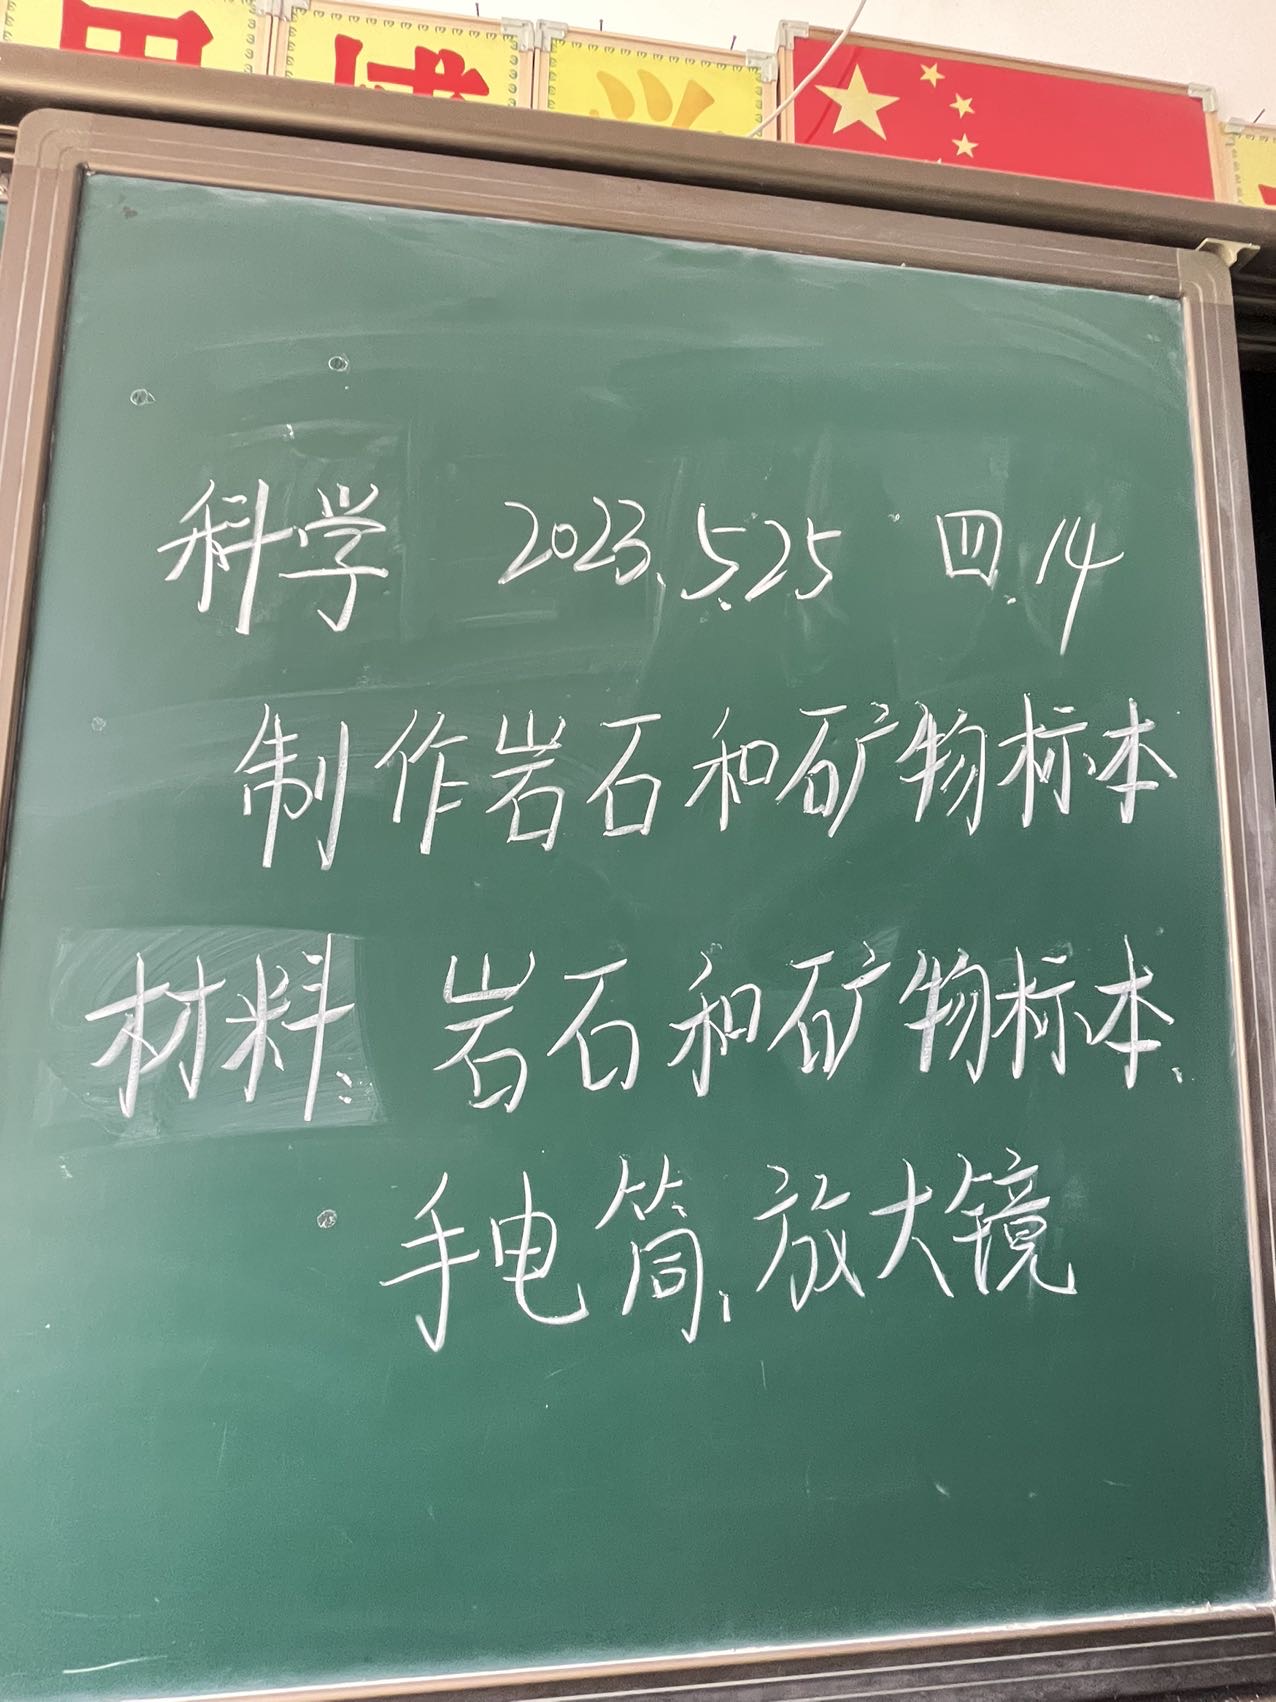 科学 2023.5.25 四.14
制作岩石和矿物标本
材料: 岩石和矿物标本、
手电筒、放大镜